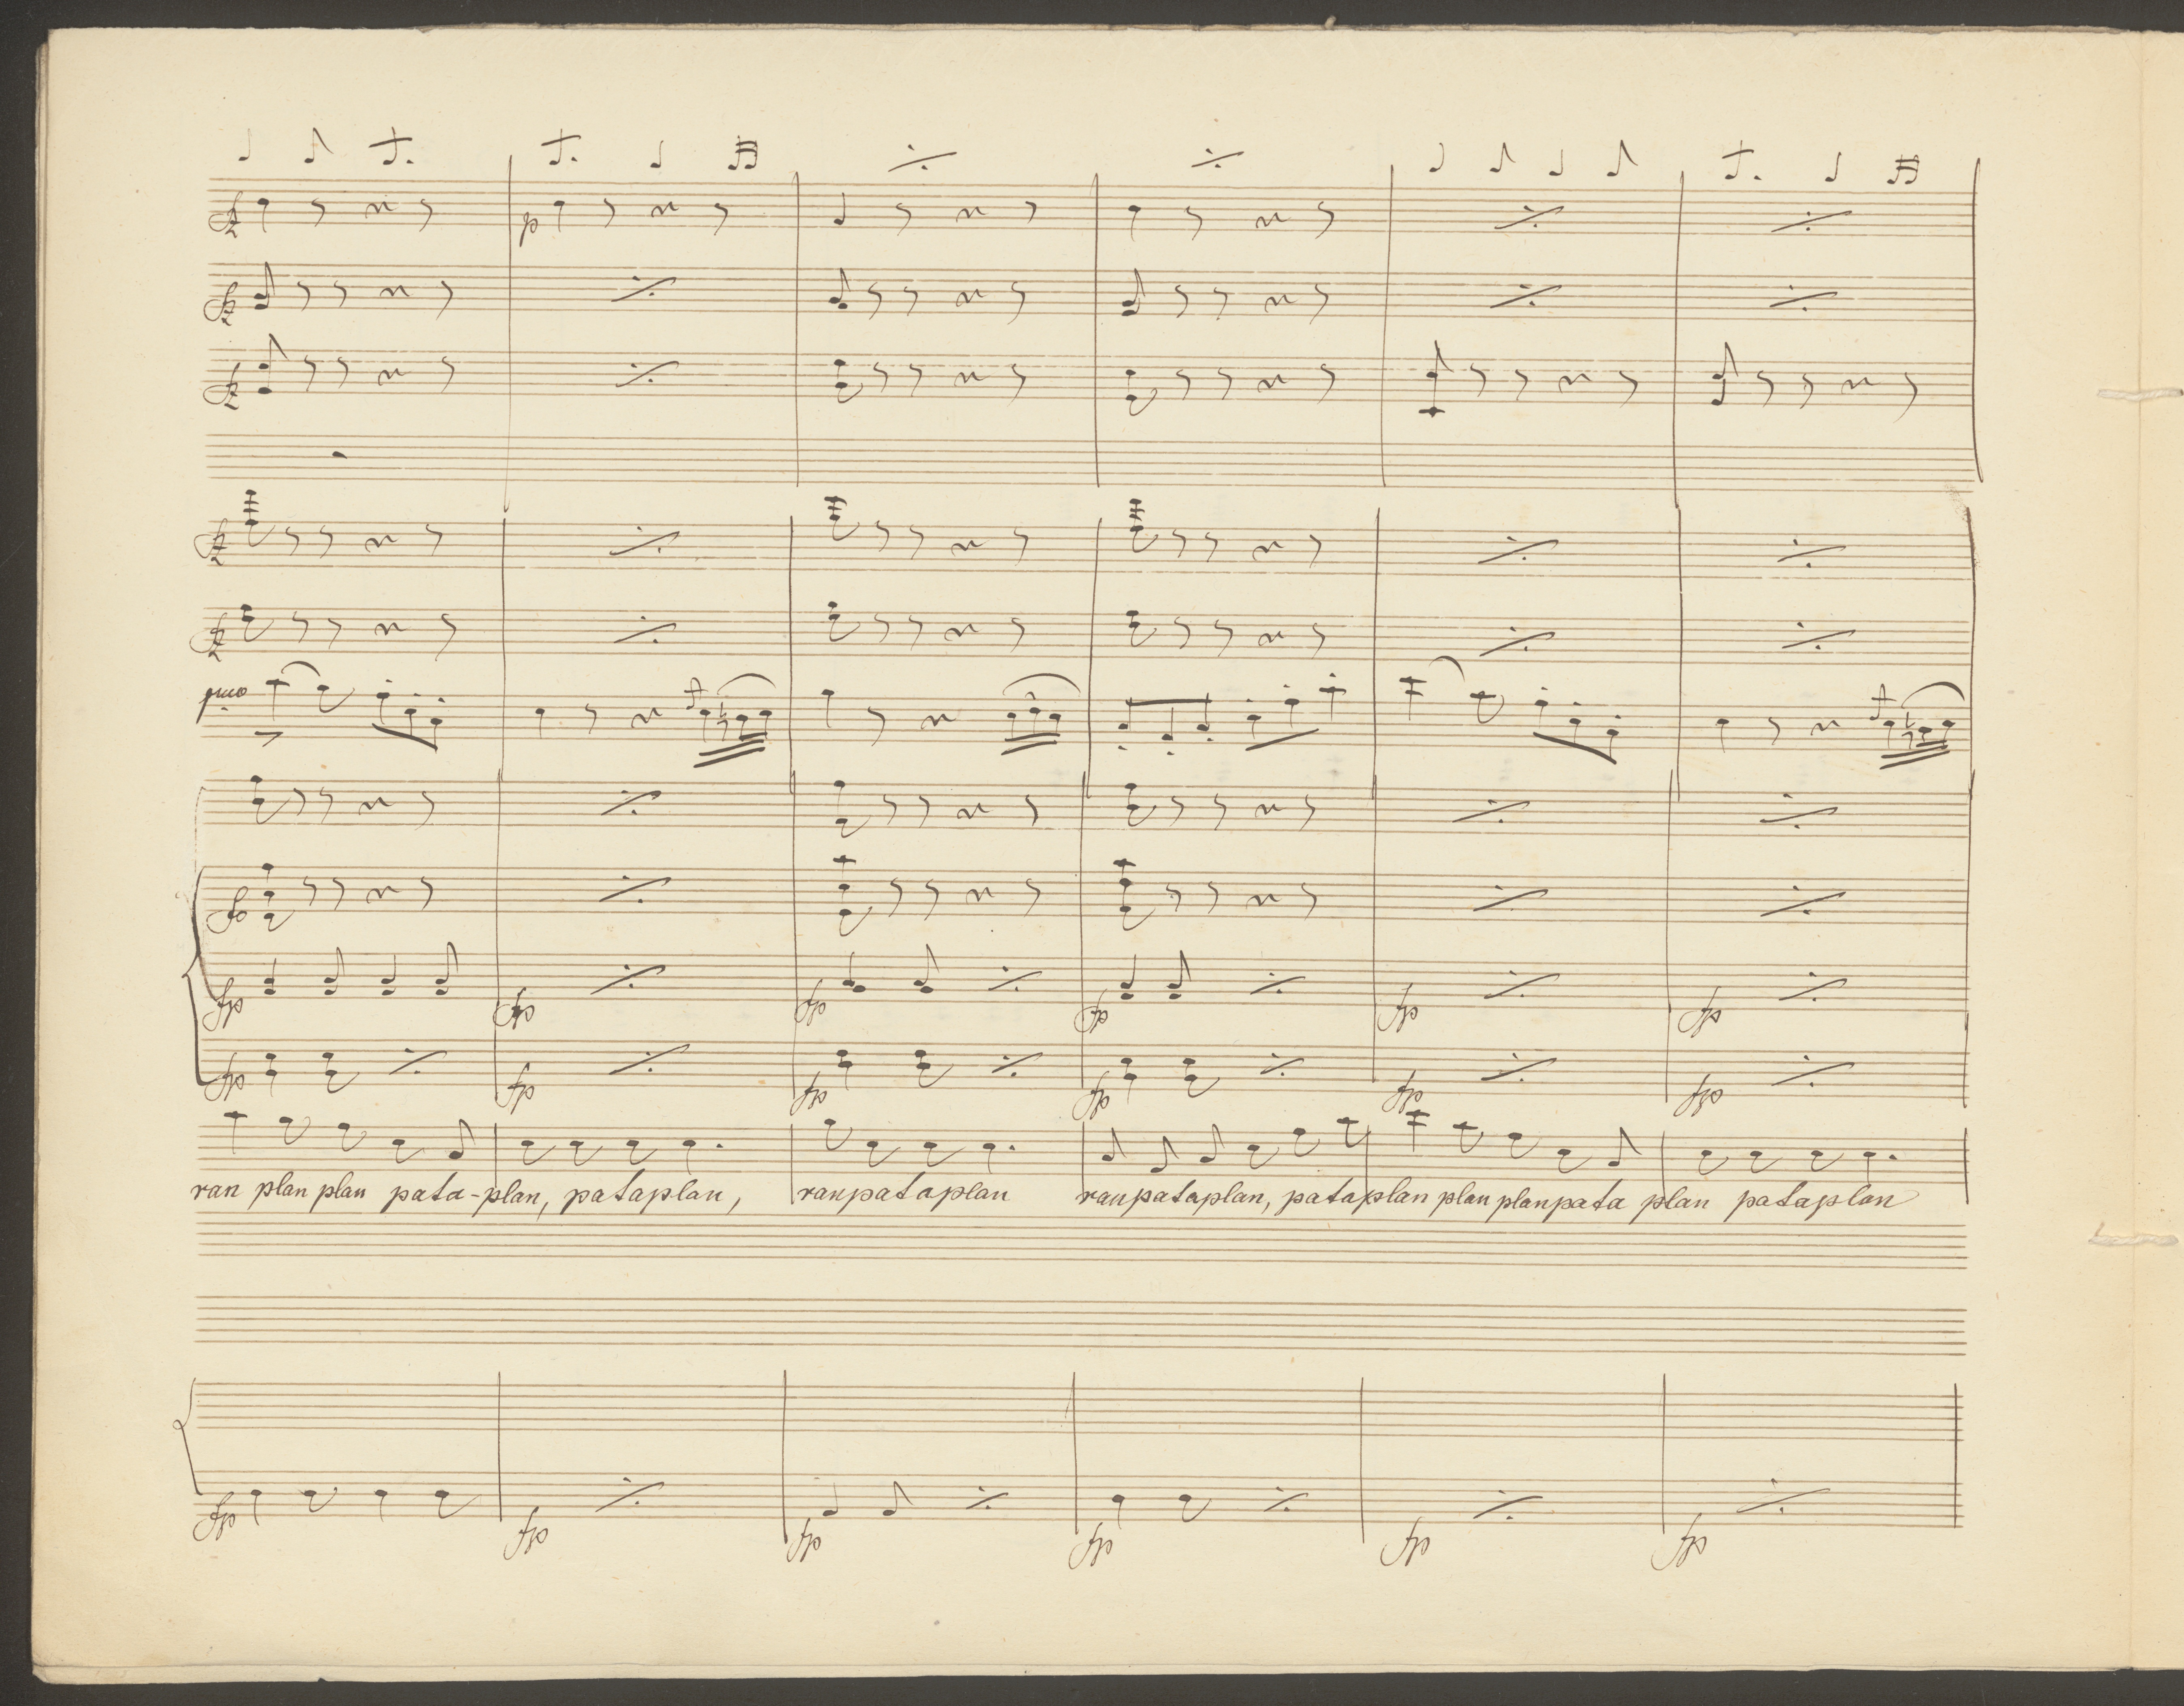 fz
p
fz
fz
fz
fz
fz
fp fp fp fp fp fp
fp fp fp fp fp fp
ran plan plan pata-plan, pataplan, ranpataplan ranpataplan, pataplan plan planpata plan pataplan
fp fp fp fp fp fp